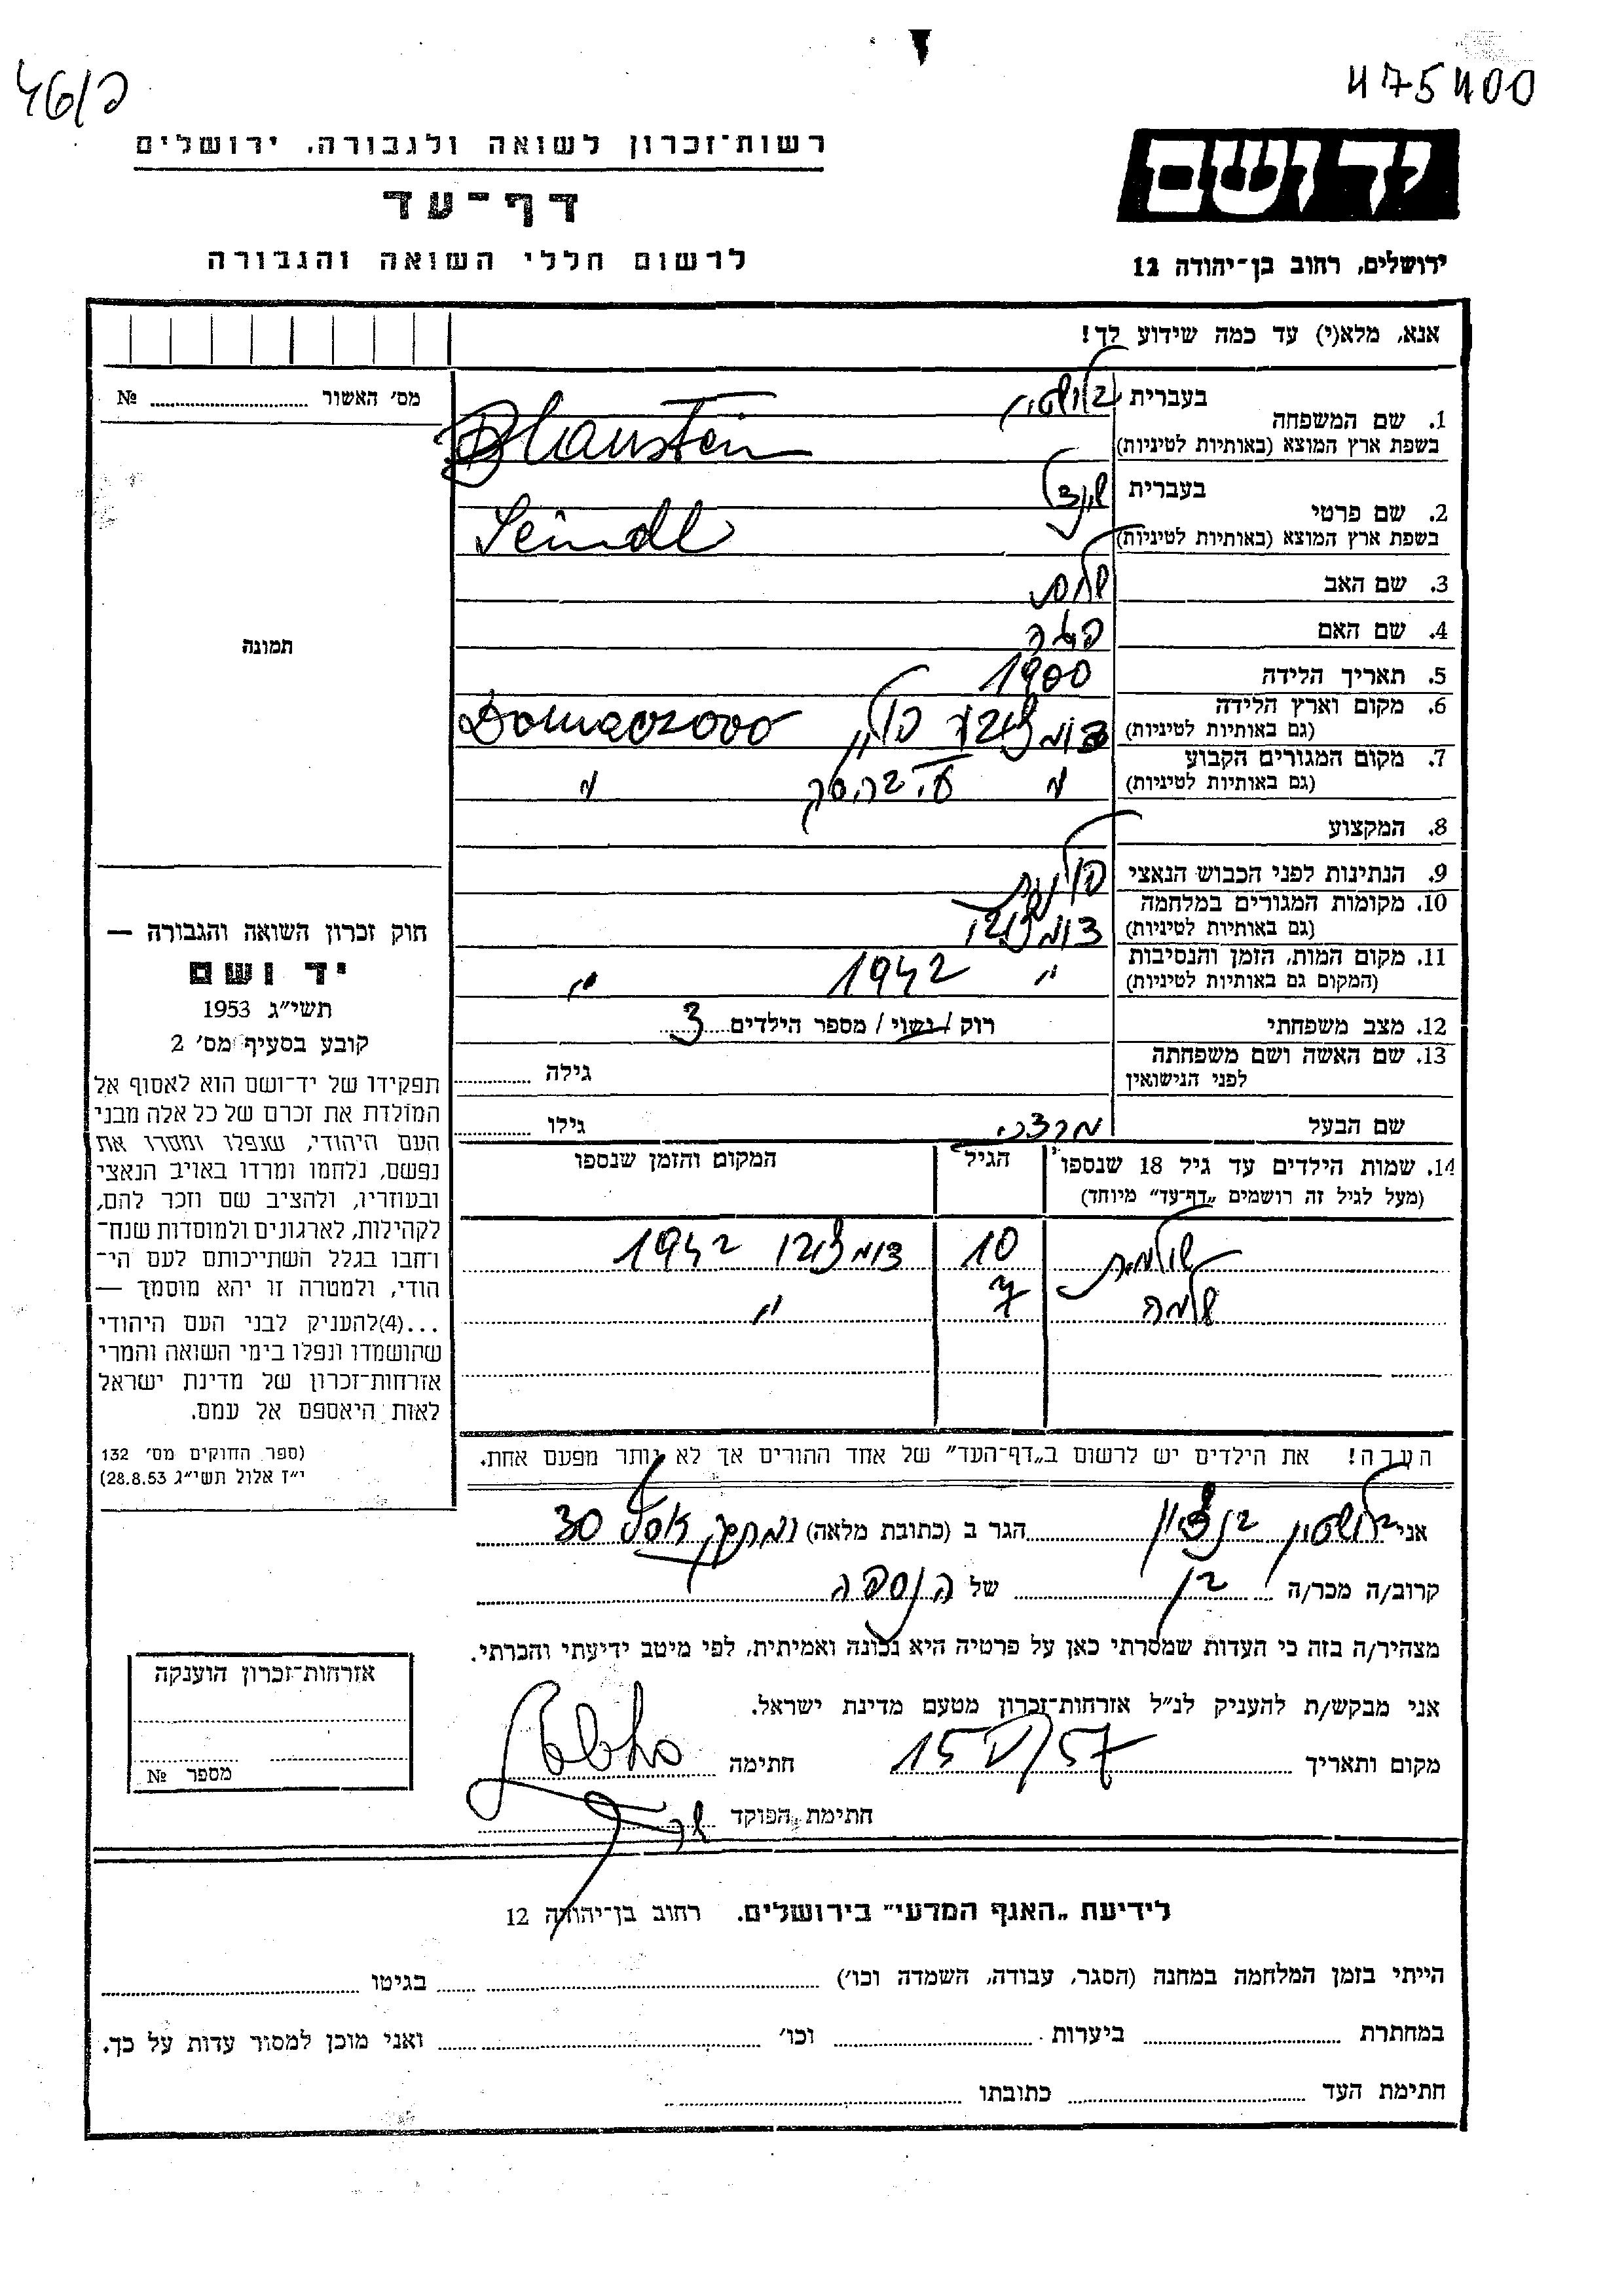 475400
46/פ
יד ושם
ירושלים, רחוב בן-יהודה 12
רשות-זכרון לשואה ולגבורה, ירושלים
דף-עד
לרשום חללי השואה והגבורה
אנא, מלא(י) עד כמה שידוע לך!
מס' האשור № 
תמונה
1. שם המשפחה בעברית בלושטין
בשפת ארץ המוצא (באותיות לטיניות) Blaustein
2. שם פרטי בעברית
בשפת ארץ המוצא (באותיות לטיניות)
3. שם האב
4. שם האם
5. תאריך הלידה 1900
6. מקום וארץ הלידה
(גם באותיות לטיניות) פולין Domaczowo
7. מקום המגורים הקבוע
(גם באותיות לטיניות) " "
8. המקצוע
9. הנתינות לפני הכבוש הנאצי פולנית
10. מקומות המגורים במלחמה
(גם באותיות לטיניות) דומצ'בו
11. מקום המות, הזמן והנסיבות
(המקום גם באותיות לטיניות) " 1942 "
12. מצב משפחתי רוק/נשוי/ מספר הילדים 3
13. שם האשה ושם משפחתה
לפני הנישואין גילה
שם הבעל מרדכי גילו
14. שמות הילדים עד גיל 18 שנספו הגיל המקום והזמן שנספו
(מעל לגיל זה רושמים „דף-עד" מיוחד)
שולמית 10 דומצ'בו 1942
שלמה 7 "
הערה! את הילדים יש לרשום ב„דף-העד" של אחד ההורים אך לא יותר מפעם אחת.
חוק זכרון השואה והגבורה —
יד ושם
תשי"ג 1953
קובע בסעיף מס' 2
תפקידו של יד-ושם הוא לאסוף אל
המולדת את זכרם של כל אלה מבני
העם היהודי, שנפלו ומסרו את
נפשם, נלחמו ומרדו באויב הנאצי
ובעוזריו, ולהציב שם וזכר להם,
לקהילות, לארגונים ולמוסדות שנח-
רחבו בגלל השתייכותם לעם הי-
הודי, ולמטרה זו יהא מוסמך —
...(4)להעניק לבני העם היהודי
שהושמדו ונפלו בימי השואה והמרי
אזרחות-זכרון של מדינת ישראל
לאות היאספם אל עמם.
(ספר החוקים מס' 132
י"ז אלול תשי"ג 28.8.53)
אני בלושטין בן ציון הגר ב (כתובת מלאה) 30
קרוב/ה מכר/ה בן של הנספה
מצהיר/ה בזה כי העדות שמסרתי כאן על פרטיה היא נכונה ואמיתית, לפי מיטב ידיעתי והכרתי.
אני מבקש/ת להעניק לנ"ל אזרחות-זכרון מטעם מדינת ישראל.
מקום ותאריך 15 V/57 חתימה
חתימת הפוקד
אזרחות-זכרון הוענקה
מספר №
לידיעת „האגף המדעי" בירושלים. רחוב בן-יהודה 12
הייתי בזמן המלחמה במחנה (הסגר, עבודה, השמדה וכו') בגיטו
במחתרת ביערות וכו' ואני מוכן למסור עדות על כך.
חתימת העד כתובתו